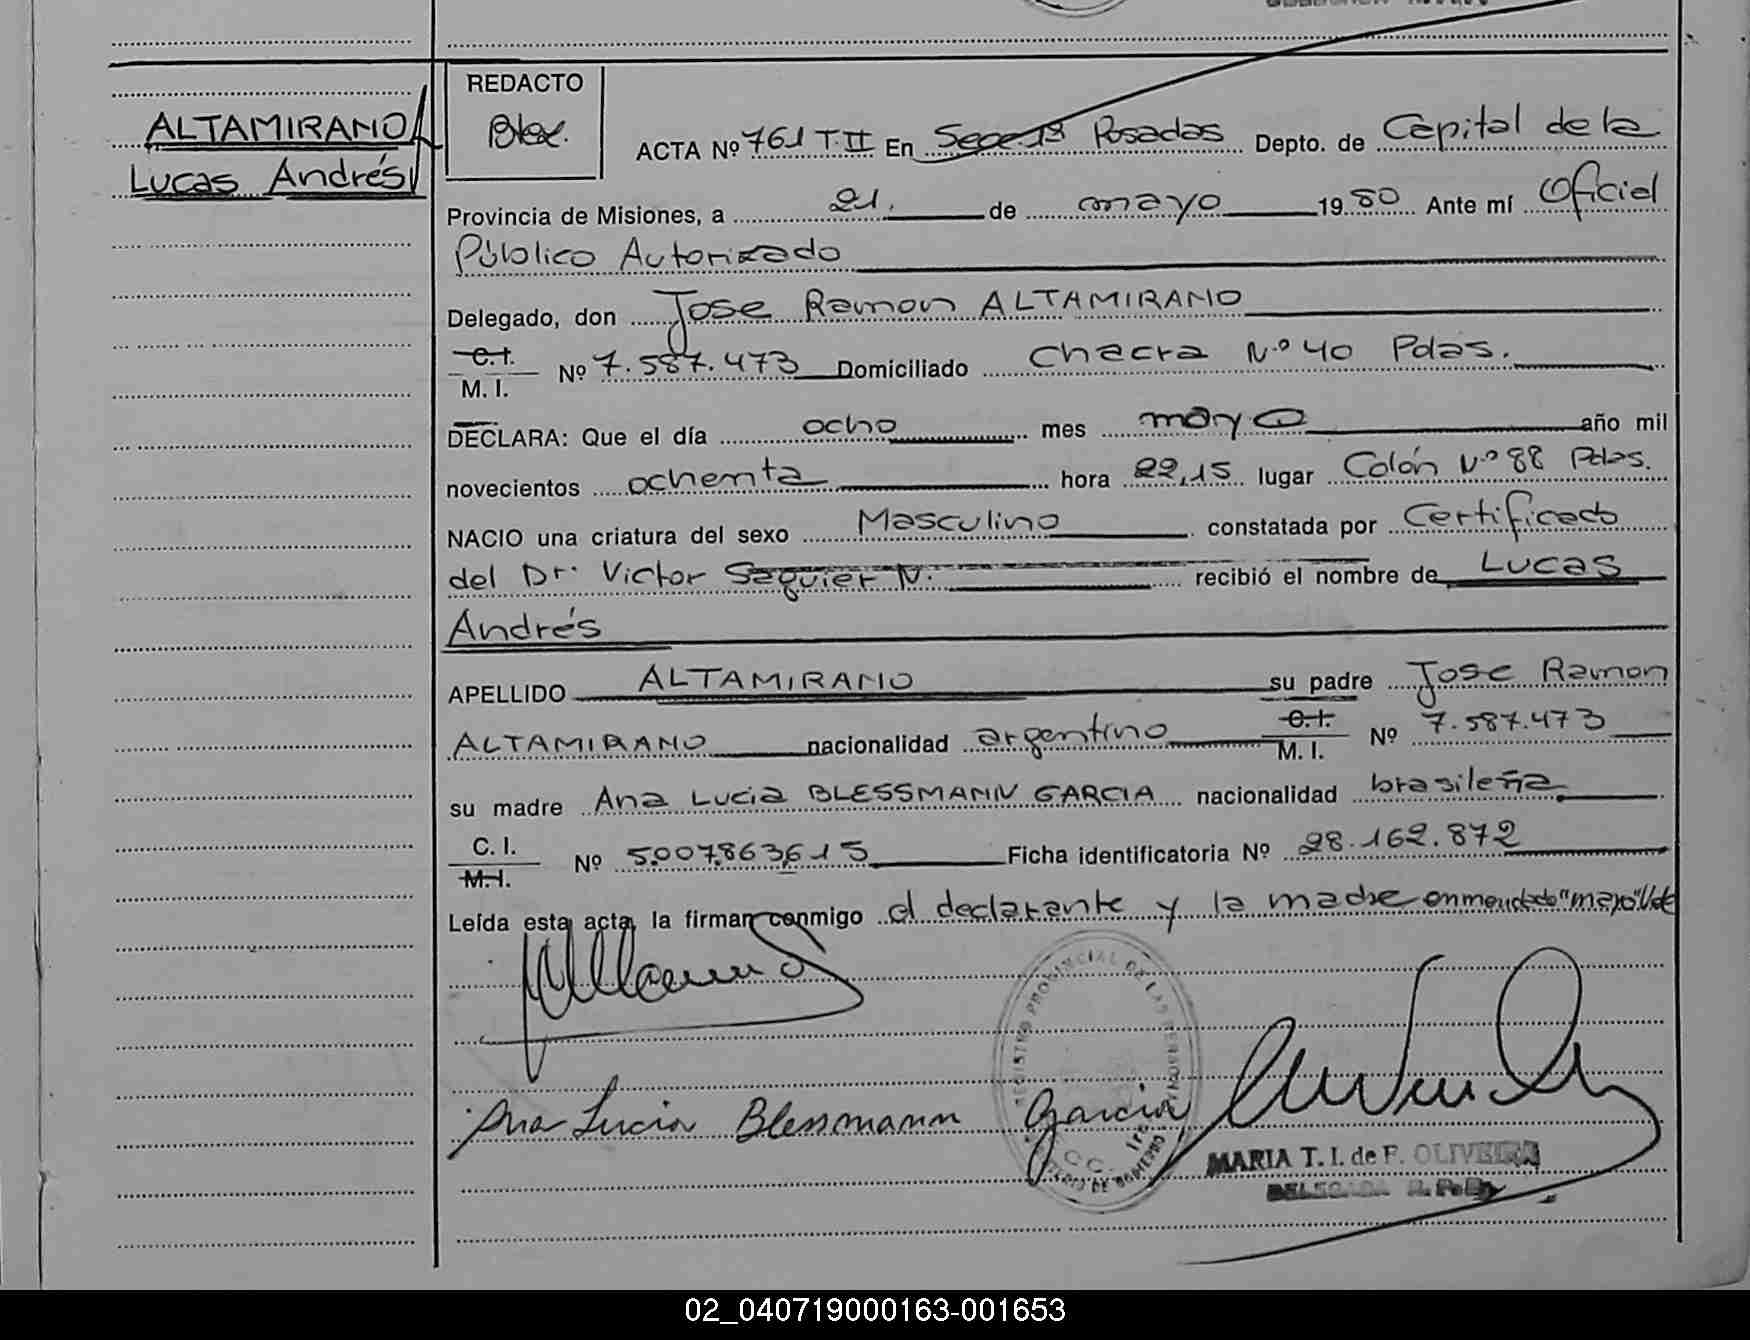 REDACTO
ALTAMIRANO
Lucas Andrés
ACTA Nº 761 T.II En Secc. 1ª Posadas Depto. de Capital de la
Provincia de Misiones, a 21. de mayo 1980 Ante mí Oficial
Público Autorizado
Delegado, don Jose Ramon ALTAMIRANO
C.I.
M. I. Nº 7.587.473 Domiciliado Chacra Nº 40 Pdas.
DECLARA: Que el día ocho mes mayo año mil
novecientos ochenta hora 22,15 lugar Colón Nº 88 Pdas.
NACIO una criatura del sexo Masculino constatada por Certificado
del Dr. Victor Seguier N. recibió el nombre de Lucas
Andrés
APELLIDO ALTAMIRANO su padre Jose Ramon
ALTAMIRANO nacionalidad argentino C.I. M. I. Nº 7.587.473
su madre Ana Lucia BLESSMANN GARCIA nacionalidad brasileña
C. I.
M.I. Nº 5007863615 Ficha identificatoria Nº 28.162.872
Leída esta acta, la firman conmigo el declarante y la madre enmendado "mayo" Vale
REGISTRO PROVINCIAL DE LAS PERSONAS
Ana Lucia Blessmann Garcia
MARIA T. I. de F. OLIVEIRA
DELEGADA R. P. P.
02_040719000163-001653